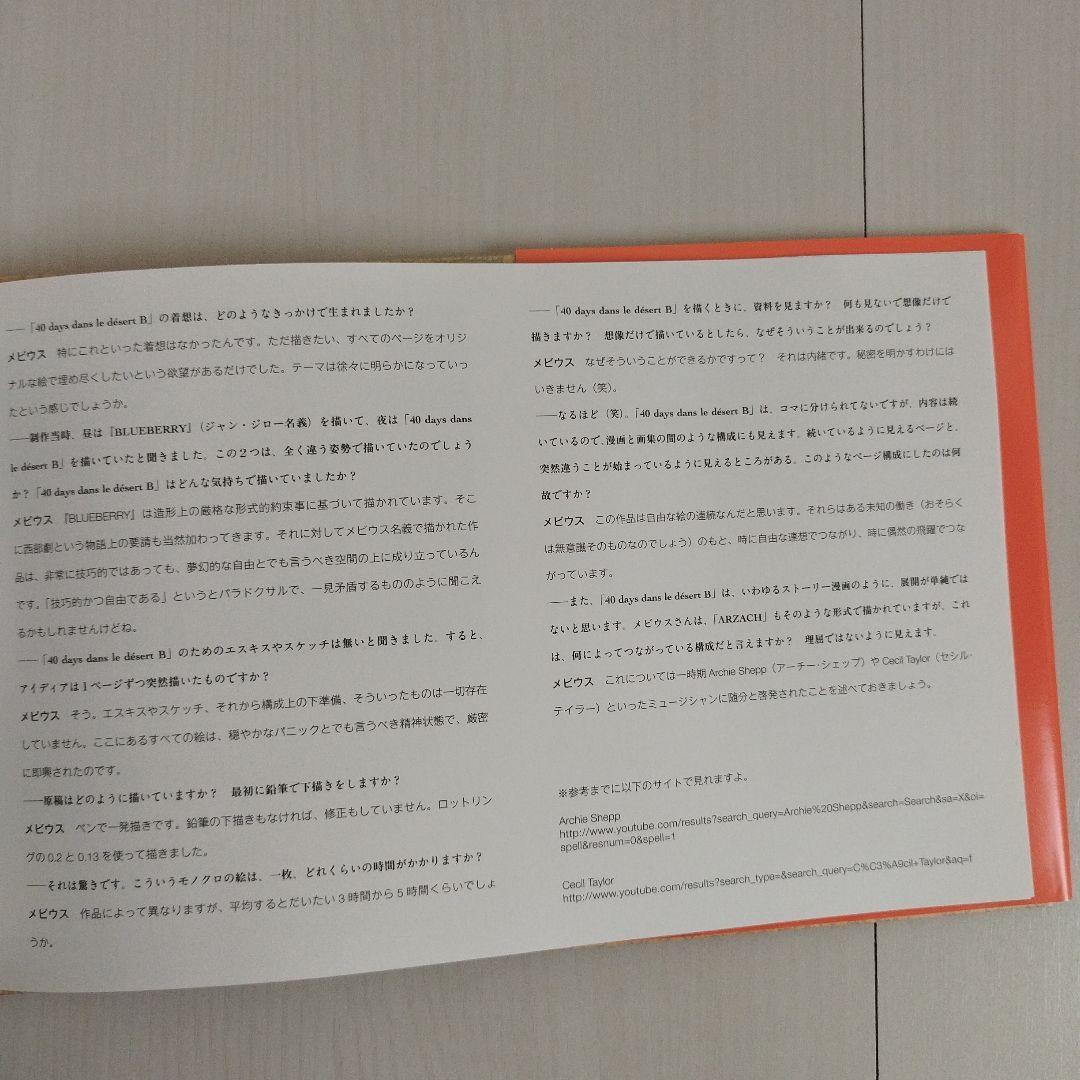 ——「40 days dans le désert B」の着想は、どのようなきっかけで生まれましたか？
メビウス　特にこれといった着想はなかったんです。ただ描きたい、すべてのページをオリジ
ナルな絵で埋め尽くしたいという欲望があるだけでした。テーマは徐々に明らかになっていっ
たという感じでしょうか。
——制作当時、昼は『BLUEBERRY』（ジャン・ジロー名義）を描いて、夜は「40 days dans
le désert B」を描いていたと聞きました。この２つは、全く違う姿勢で描いていたのでしょう
か？「40 days dans le désert B」はどんな気持ちで描いていましたか？
メビウス　『BLUEBERRY』は造形上の厳格な形式的約束事に基づいて描かれています。そこ
に西部劇という物語上の要請も当然加わってきます。それに対してメビウス名義で描かれた作
品は、非常に技巧的ではあっても、夢幻的な自由とでも言うべき空間の上に成り立っているん
です。「技巧的かつ自由である」というとパラドクサルで、一見矛盾するもののように聞こえ
るかもしれませんけどね。
——「40 days dans le désert B」のためのエスキスやスケッチは無いと聞きました。すると、
アイディアは１ページずつ突然描いたものですか？
メビウス　そう。エスキスやスケッチ、それから構成上の下準備、そういったものは一切存在
していません。ここにあるすべての絵は、穏やかなパニックとでも言うべき精神状態で、厳密
に即興されたのです。
——原稿はどのように描いていますか？　最初に鉛筆で下描きをしますか？
メビウス　ペンで一発描きです。鉛筆の下描きもなければ、修正もしていません。ロットリン
グの0.2と0.13を使って描きました。
——それは驚きです。こういうモノクロの絵は、一枚、どれくらいの時間がかかりますか？
メビウス　作品によって異なりますが、平均するとだいたい３時間から５時間くらいでしょ
うか。
——「40 days dans le désert B」を描くときに、資料を見ますか？　何も見ないで想像だけで
描きますか？　想像だけで描いているとしたら、なぜそういうことが出来るのでしょう？
メビウス　なぜそういうことができるかですって？　それは内緒です。秘密を明かすわけには
いきません（笑）。
——なるほど（笑）。「40 days dans le désert B」は、コマに分けられてないですが、内容は続
いているので、漫画と画集の間のような構成にも見えます。続いているように見えるページと、
突然違うことが始まっているように見えるところがある。このようなページ構成にしたのは何
故ですか？
メビウス　この作品は自由な絵の連続なんだと思います。それらはある未知の働き（おそらく
は無意識そのものなのでしょう）のもと、時に自由な連想でつながり、時に偶然の飛躍でつな
がっています。
——また、「40 days dans le désert B」は、いわゆるストーリー漫画のように、展開が単純では
ないと思います。メビウスさんは、「ARZACH」もそのような形式で描かれていますが、これ
は、何によってつながっている構成だと言えますか？　理屈ではないように見えます。
メビウス　これについては一時期 Archie Shepp（アーチー・シェップ）や Cecil Taylor（セシル・
テイラー）といったミュージシャンに随分と啓発されたことを述べておきましょう。
※参考までに以下のサイトで見れますよ。
Archie Shepp
http://www.youtube.com/results?search_query=Archie%20Shepp&search=Search&sa=X&oi=
spell&resnum=0&spell=1
Cecil Taylor
http://www.youtube.com/results?search_type=&search_query=C%C3%A9cil+Taylor&aq=f